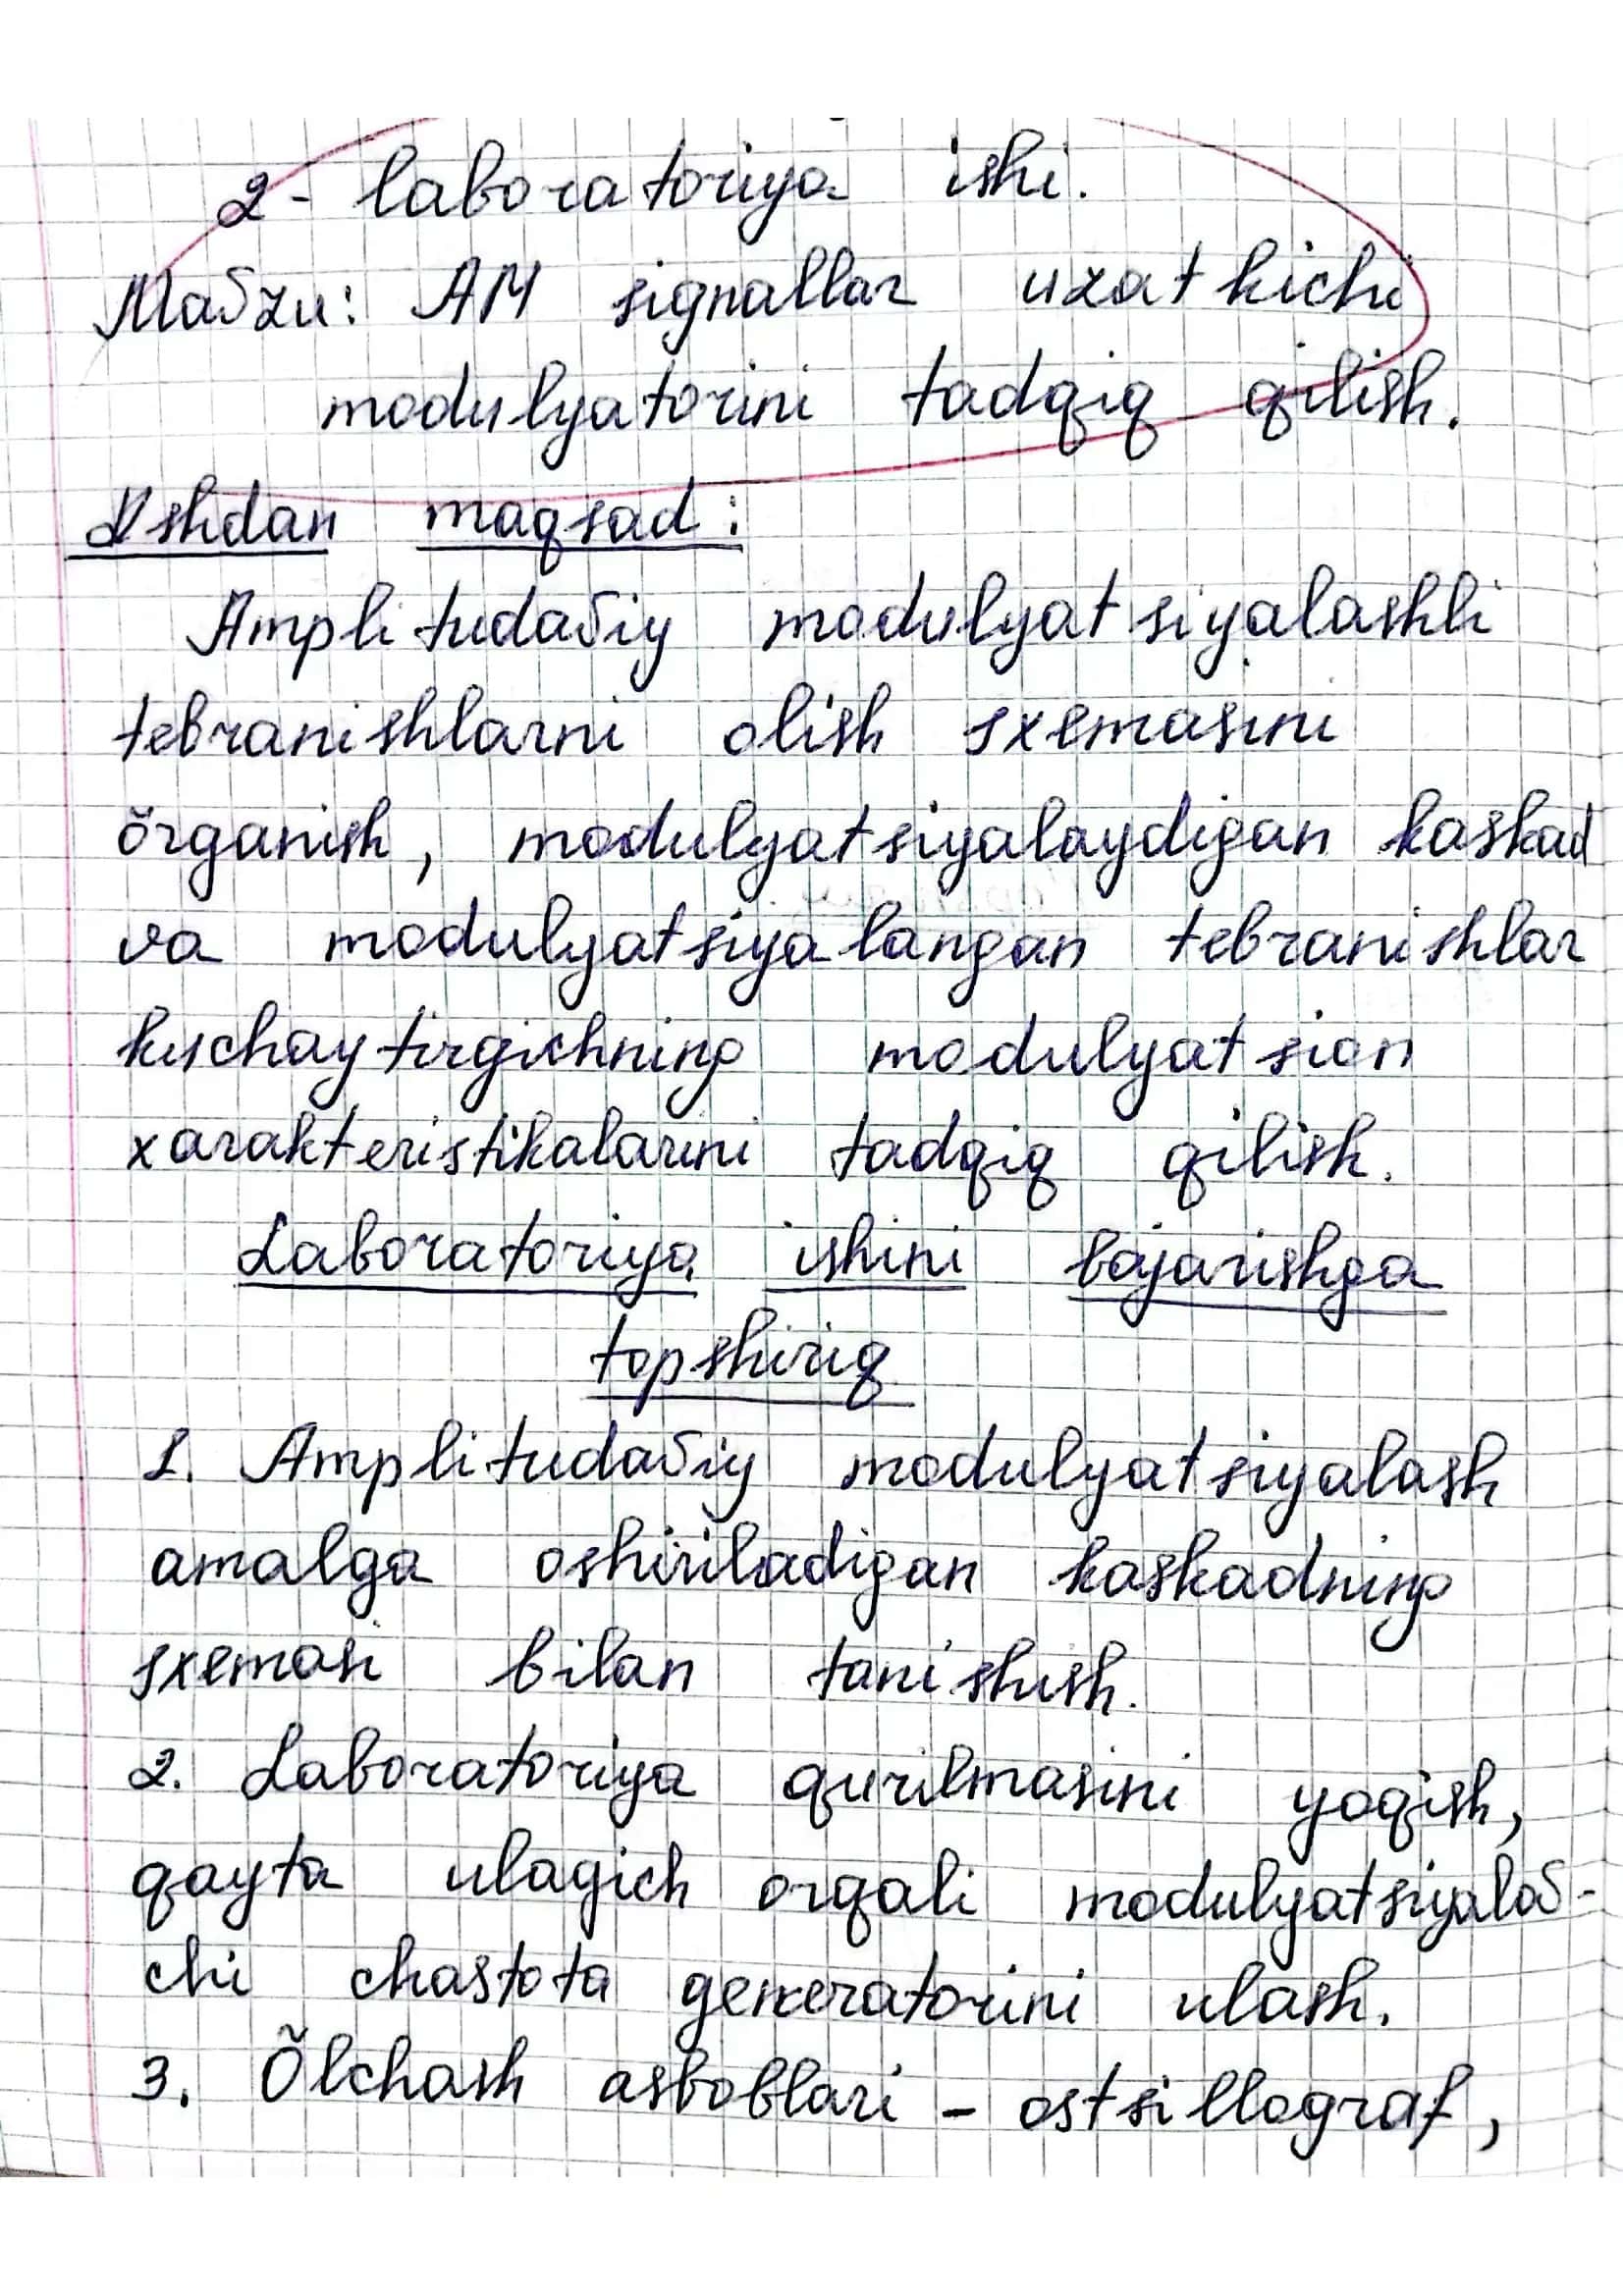 2- laboratoriya ishi.
Mavzu: AM signallar uzatkichi
modulyatorini tadqiq qilish.
Ishdan maqsad:
Amplitudaviy modulyatsiyalashli
tebranishlarni olish sxemasini
õrganish, modulyatsiyalaydigan kaskad
va modulyatsiyalangan tebranishlar
kuchaytirgichning modulyatsion
xarakteristikalarini tadqiq qilish.
Laboratoriya ishini bajarishga
topshiriq
1. Amplitudaviy modulyatsiyalash
amalga oshiriladigan kaskadning
sxemasi bilan tanishish.
2. Laboratoriya qurilmasini yoqish,
qayta ulagich orqali modulyatsiyalov-
chi chastota generatorini ulash.
3. Õlchash asboblari - ostsillograf,